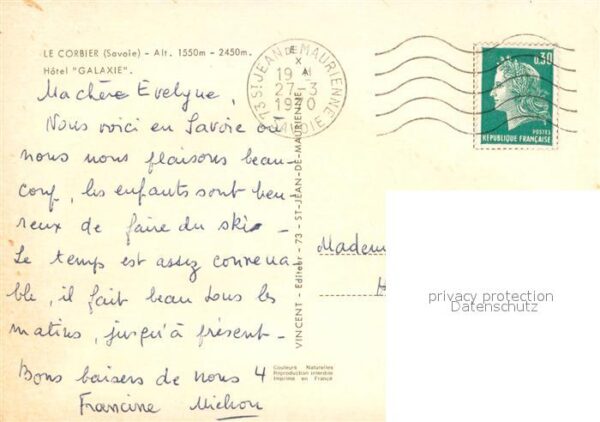 LE CORBIER (Savoie) - Alt. 1550m - 2450m.
Hôtel "GALAXIE".
Ma chère Evelyne,
Nous voici en Savoie où
nous nous plaisons beau-
coup, les enfants sont heu
reux de faire du ski -
Le temps est assez convena
ble, il fait beau tous les
matins, jusqu'à présent -
Bons baisers de nous 4
Francine Michon
73 ST JEAN DE MAURIENNE
19 H
27-3
1970
SAVOIE
0,30
POSTES
RÉPUBLIQUE FRANÇAISE
VINCENT - Editeur - 73 - ST-JEAN-DE-MAURIENNE
Madem
privacy protection
Datenschutz
Couleurs Naturelles
Reproduction interdite
Imprimé en France